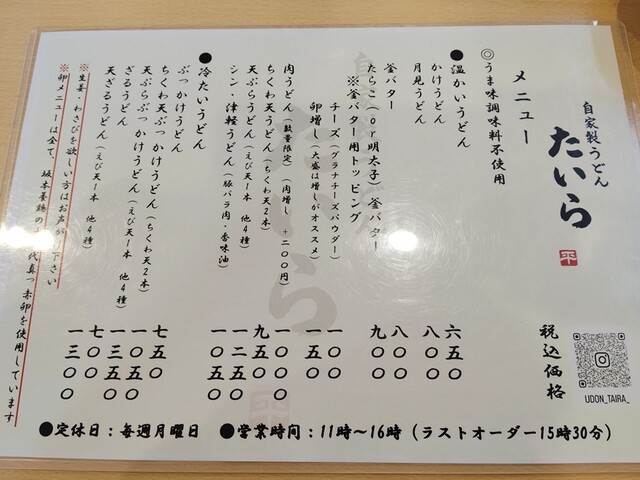 自家製うどん
たいら
平
UDON_TAIRA_
税込価格
メニュー
◎うま味調味料不使用
●温かいうどん
かけうどん 六五〇
月見うどん 八〇〇
釜バター 八〇〇
たらこ(or明太子)釜バター 九〇〇
※釜バター用トッピング
チーズ(グラナチーズパウダー) 一〇〇
卵増し(大盛は増しがオススメ) 一五〇
肉うどん(数量限定)(肉増し +二〇〇円) 一〇〇〇
ちくわ天うどん(ちくわ天2本) 九五〇
天ぷらうどん(えび天1本 他4種) 一二五〇
シン・津軽うどん(豚バラ肉・香味油) 一〇五〇
●冷たいうどん
ぶっかけうどん 七五〇
ちくわ天ぶっかけうどん(ちくわ天2本) 一〇五〇
天ぷらぶっかけうどん(えび天1本 他4種) 一三五〇
ざるうどん 七〇〇
天ざるうどん(えび天1本 他4種) 一三〇〇
※生姜・わさびを欲しい方はお声がけ下さい
※卵メニューは全て、坂本養鶏の 代真っ赤卵を使用しています
●営業時間：11時〜16時（ラストオーダー15時30分）
●定休日：毎週月曜日